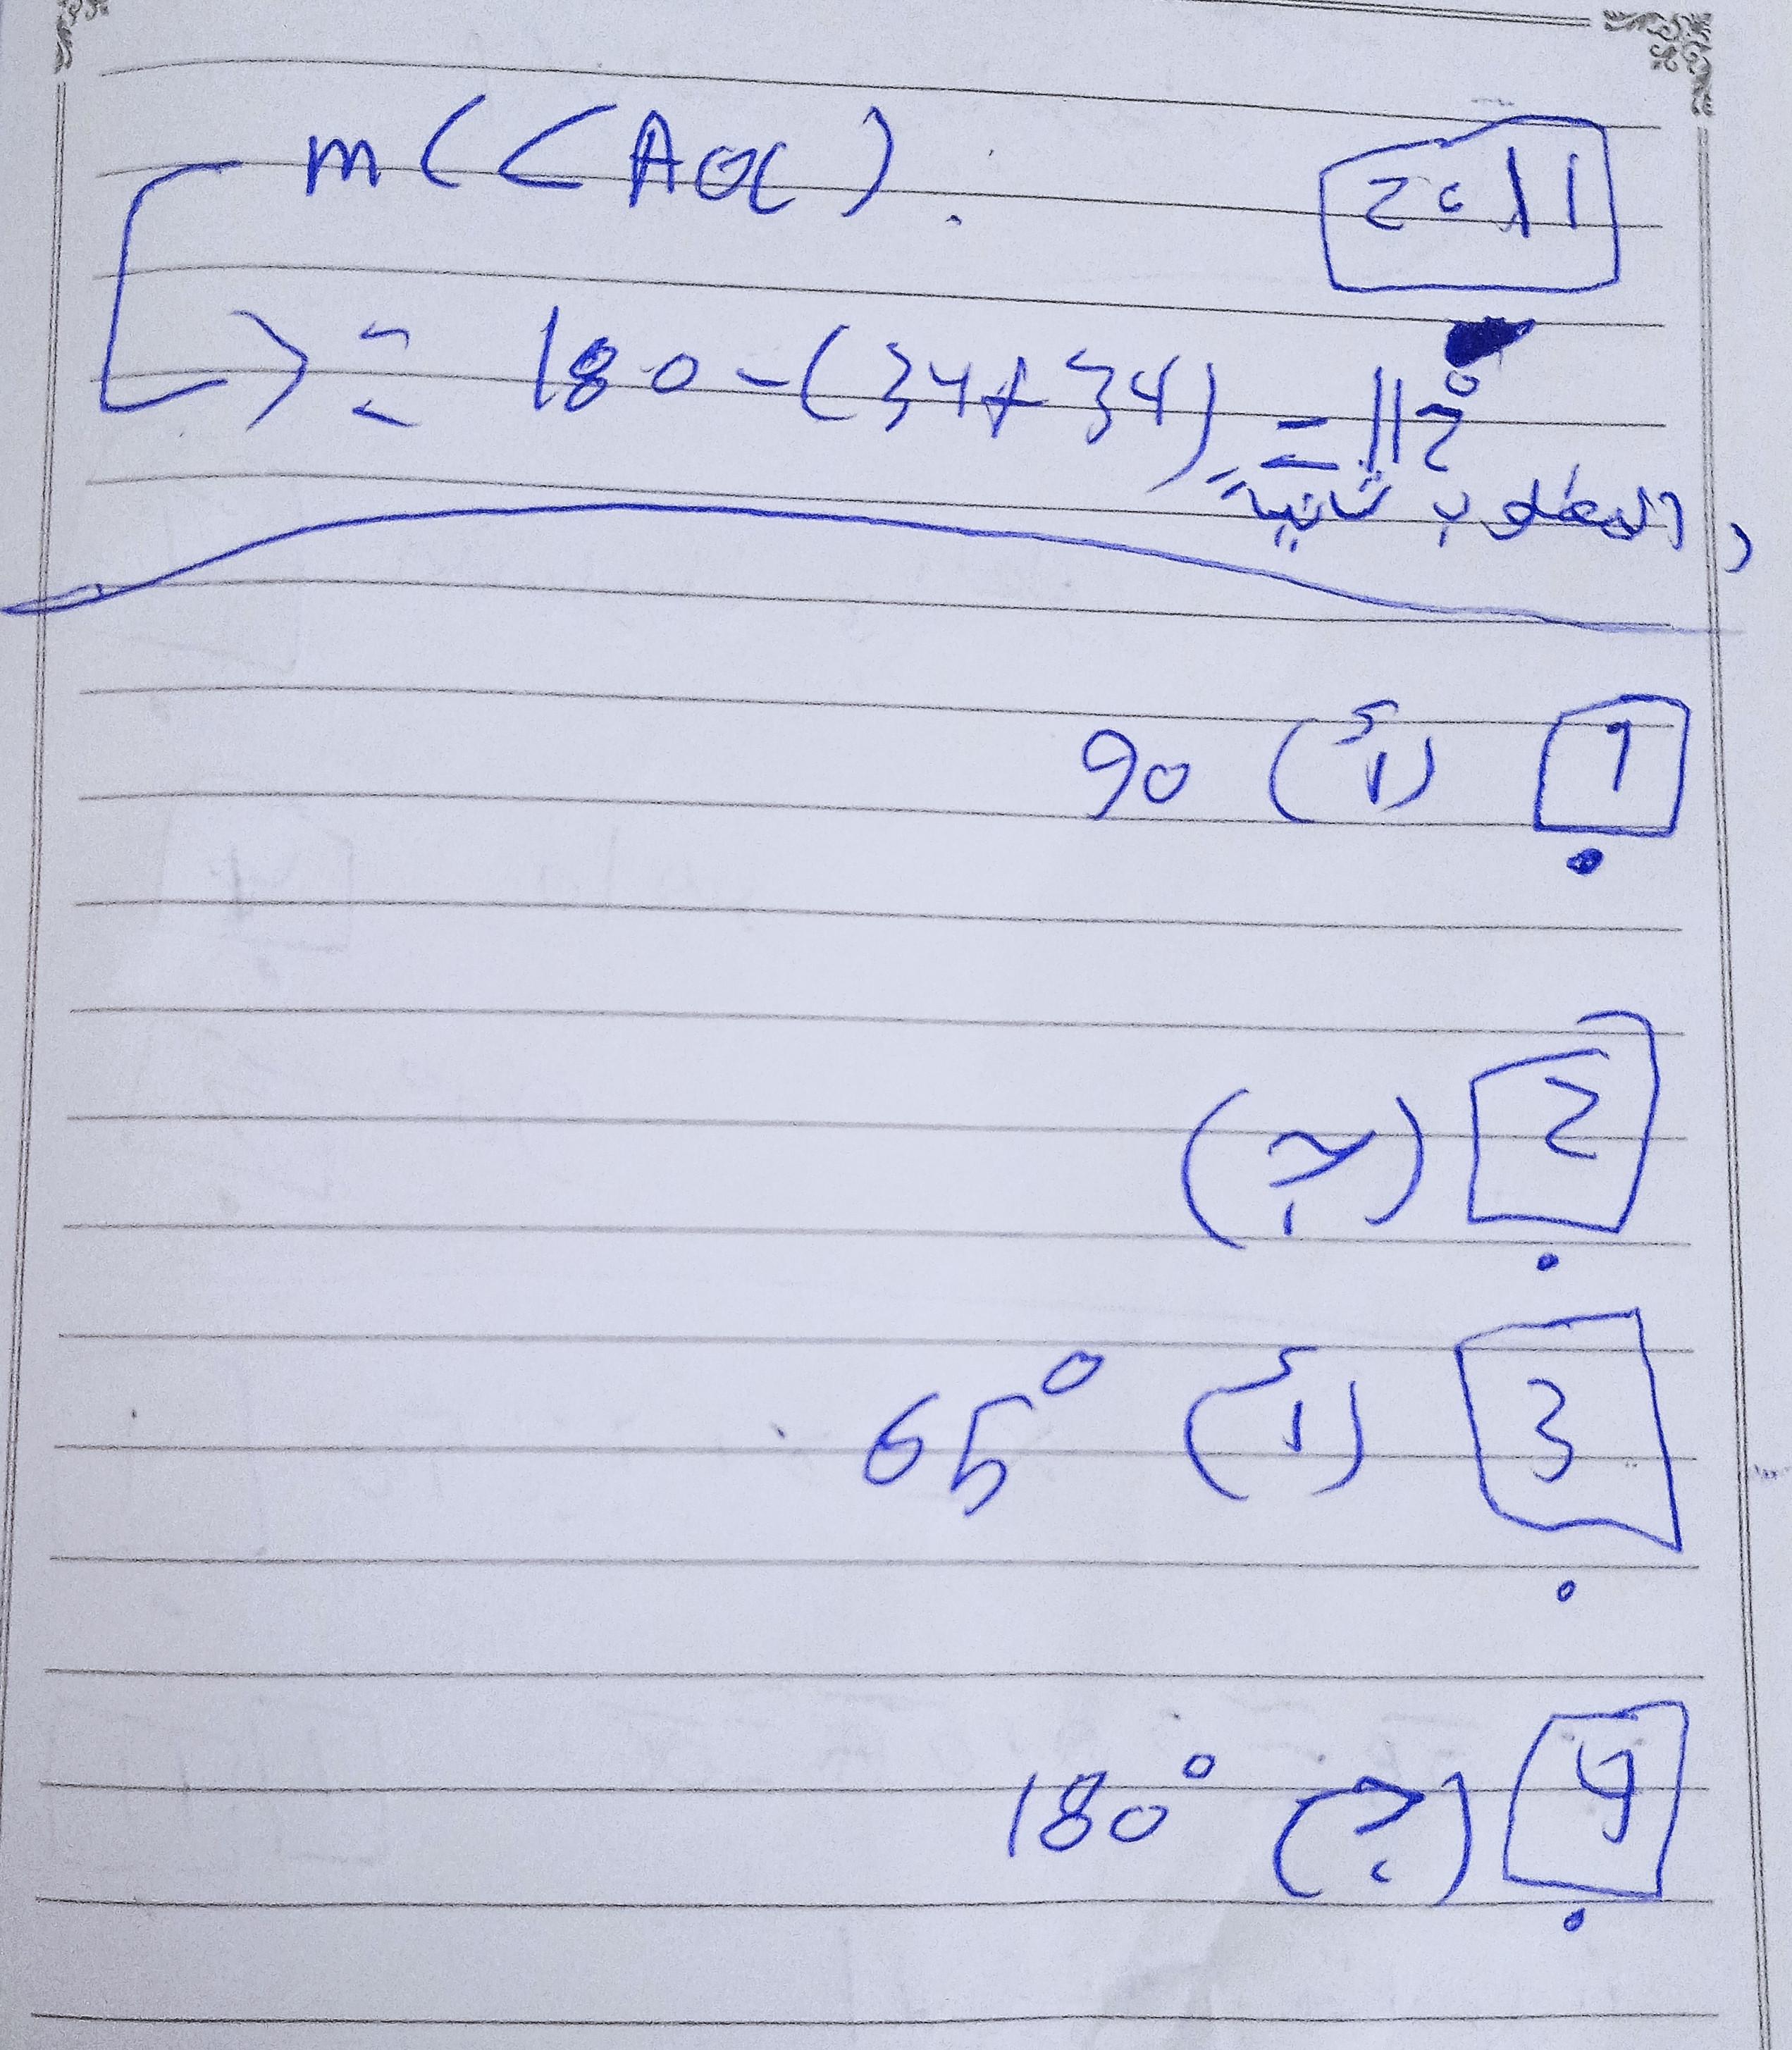 m(<AOC). 2011
= 180-(34+34) = 112°
, المطلوب ثانيةً
1 (أ) 90
2 (ج)
3 (أ) 65°
4 (ج) 180°